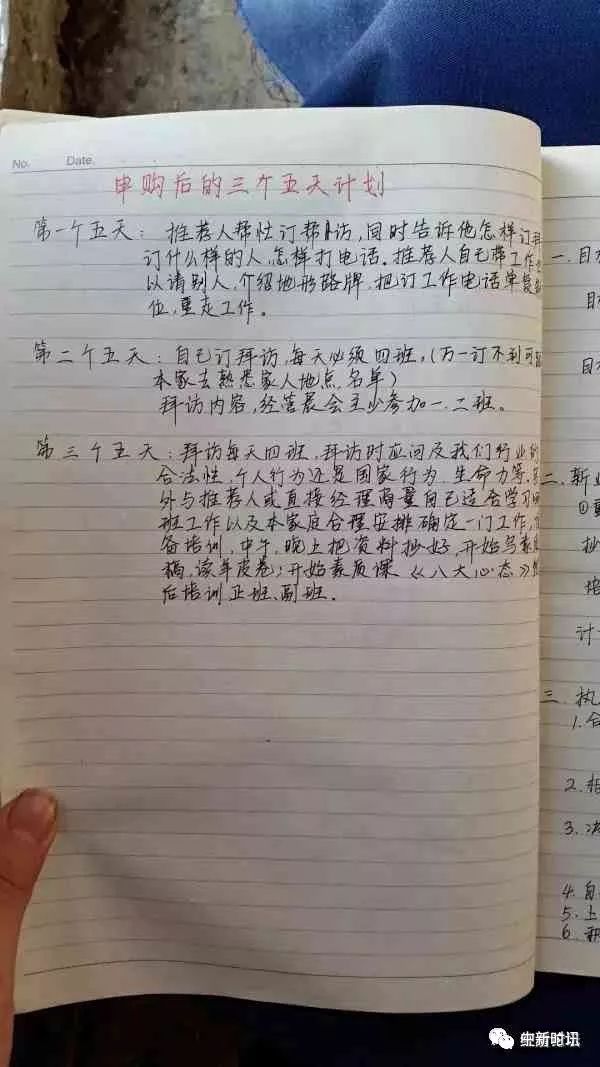 No. Date.
申购后的三个五天计划
第一个五天：推荐人帮忙订帮访，同时告诉他怎样订拜
订什么样的人，怎样打电话。推荐人自己带工作
以请别人，介绍地形路牌，把订工作电话单
位，重走工作。
第二个五天：自己订拜访，每天必须四班，(万一订不到可
本家去熟悉家人地点，名单)
拜访内容，经营晨会至少参加一.二班。
第三个五天：拜访每天四班，拜访时应问及我们行业的
合法性，个人行为还是国家行为，生命力等，
外与推荐人或直接经理商量自己适合学习
班工作以及本家庭合理安排确定一门工作，
备培训，中午，晚上把资料抄好，开始写素
稿，读羊皮卷；开始素质课《八大心态》
后培训正班、副班。
一.目
目
目
二.新业
①
抄
培
计
三.执
1.合
2.相
3.决
4.自
5.上
6.新
生新时讯